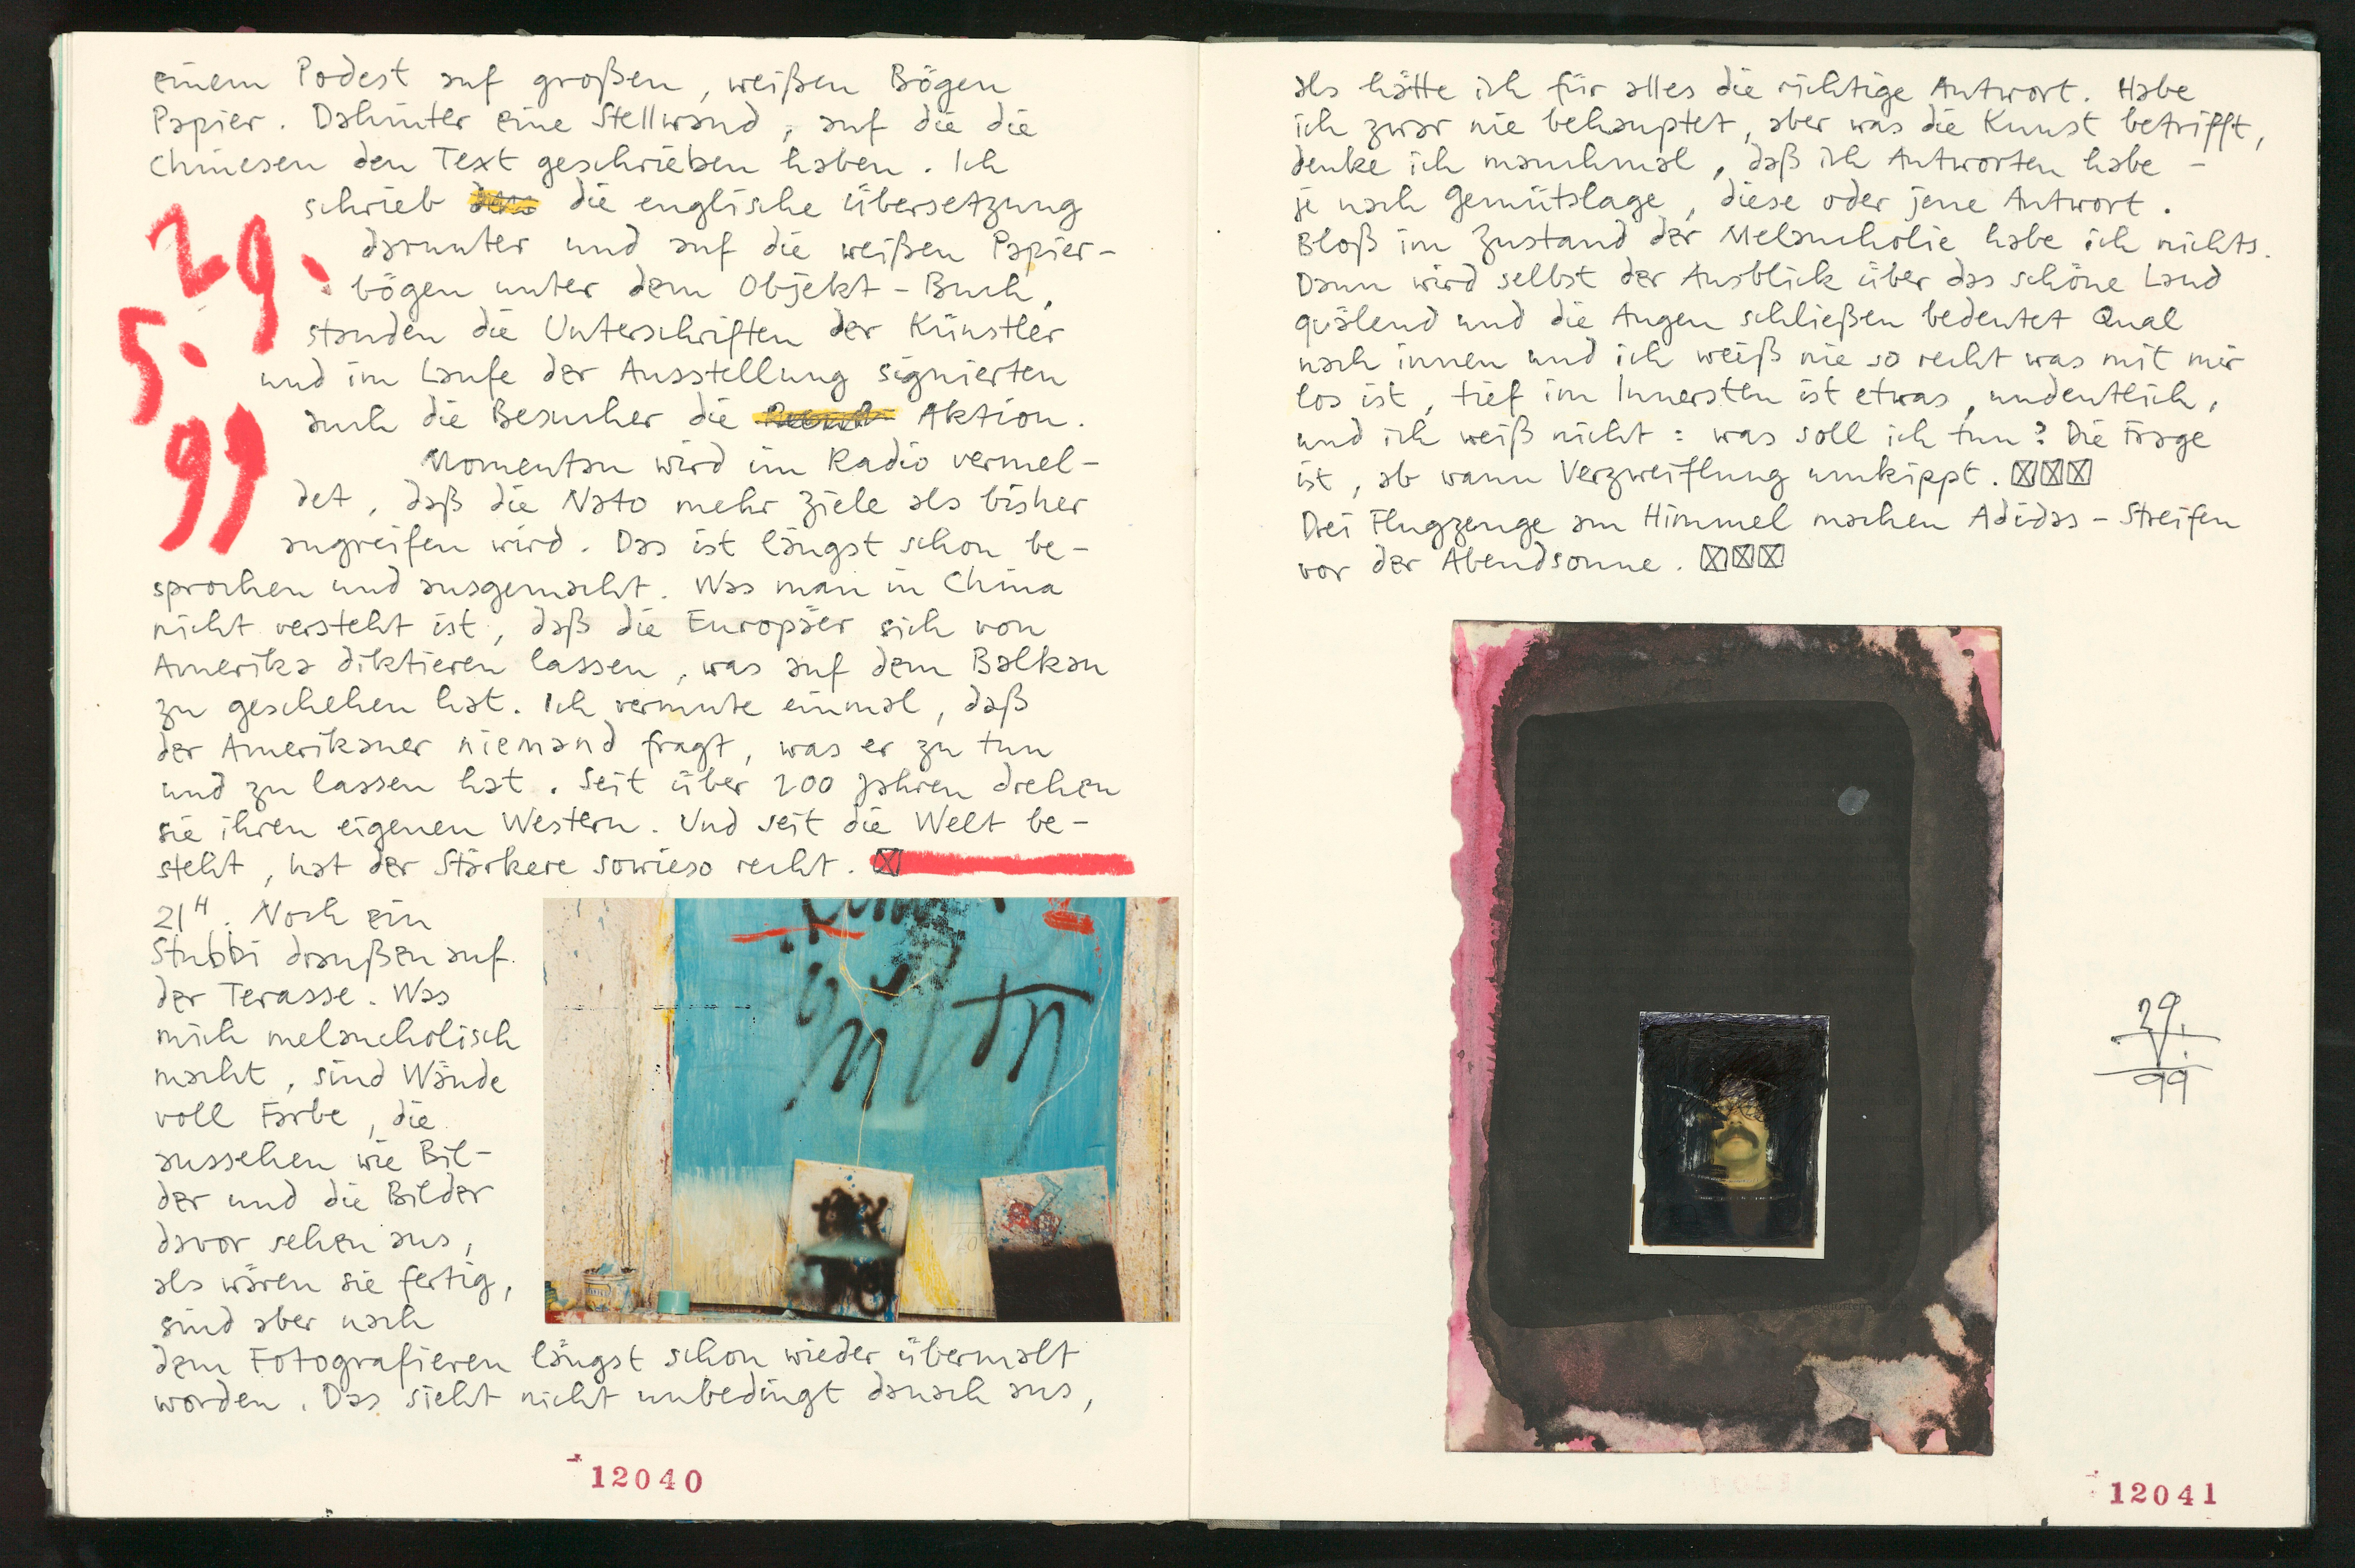 einem Podest auf großen, weißen Bögen
Papier. Dahinter eine Stellwand, auf die die
Chinesen den Text geschrieben haben. Ich
schrieb die englische Übersetzung
darunter und auf die weißen Papier-
bögen unter dem Objekt-Buch,
standen die Unterschriften der Künstler
und im Laufe der Ausstellung signierten
auch die Besucher die Aktion.
29.
5.
99
Momentan wird im Radio vermel-
det, daß die Nato mehr Ziele als bisher
angreifen wird. Das ist längst schon be-
sprochen und ausgemacht. Was man in China
nicht versteht ist, daß die Europäer sich von
Amerika diktieren lassen, was auf dem Balkan
zu geschehen hat. Ich vermute einmal, daß
der Amerikaner niemand fragt, was er zu tun
und zu lassen hat. Seit über 200 Jahren drehen
sie ihren eigenen Western. Und seit die Welt be-
steht, hat der Stärkere sowieso recht.
21H. Noch ein
Stubbi draußen auf
der Terasse. Was
mich melancholisch
macht, sind Wände
voll Farbe, die
aussehen wie Bil-
der und die Bilder
davor sehen aus,
als wären sie fertig,
sind aber nach
dem Fotografieren längst schon wieder übermalt
worden. Das sieht nicht unbedingt danach aus,
12040
als hätte ich für alles die richtige Antwort. Habe
ich zwar nie behauptet, aber was die Kunst betrifft,
denke ich manchmal, daß ich Antworten habe –
je nach Gemütslage, diese oder jene Antwort.
Bloß im Zustand der Melancholie habe ich nichts.
Dann wird selbst der Ausblick über das schöne Land
quälend und die Augen schließen bedeutet Qual
nach innen und ich weiß nie so recht was mit mir
los ist, tief im Innersten ist etwas, undeutlich,
und ich weiß nicht: was soll ich tun? Die Frage
ist, ab wann Verzweiflung umkippt.
Drei Flugzeuge am Himmel machen Adidas-Streifen
vor der Abendsonne.
29.
V.
99
12041